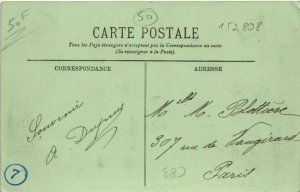 50F
50
152808
CARTE POSTALE
Tous les Pays étrangers n'acceptent pas la Correspondance au recto.
(Se renseigner à la Poste).
CORRESPONDANCE
ADRESSE
Souvenir
A Dupuy
Mlle M. Blottière
307 rue de Vaugirard
Paris
(88)
7